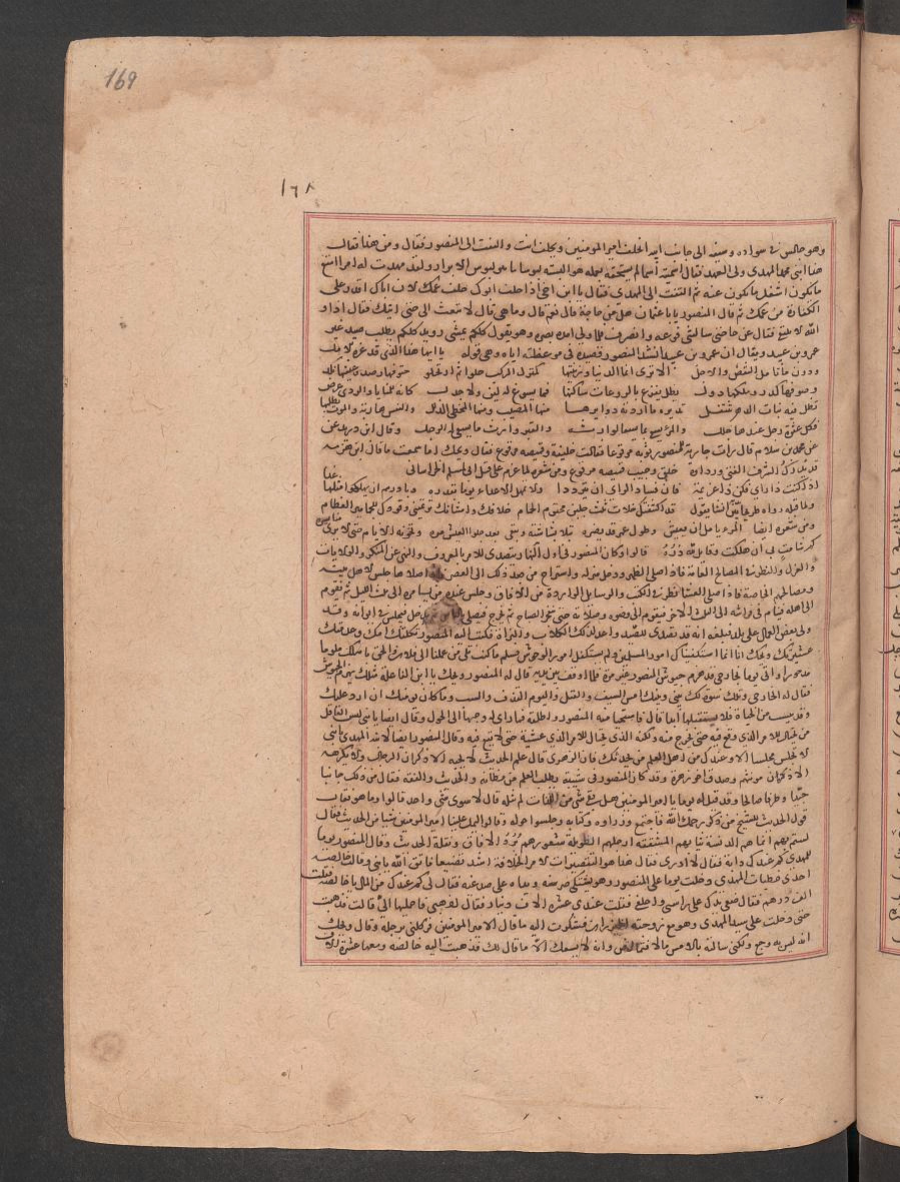 169
١٦٨
وهو جالس في سواده وسيفه الى جانب ابيه ايحلف امير المومنين ويحلف انت والتفت الى المنصور فقال ومن هذا فقال
هذا ابني محمد المهدي ولي العهد فقال اسميته اسما لم يستحقه بعمله هو البسته لبوسا ما هو لبوس الابرار ولقد مهدت له امرا امتع
ما يكون اشغل ما يكون عنه ثم التفت الى المهدي فقال يا ابن اخي اذا حلف ابوك حلف عمك لان اباك اقدر على
الكفارة من عمك ثم قال المنصور يا با عثمان هل من حاجة قال نعم قال وما هي قال لا تبعث الى حتى اتيك فقال اذا و
الله لا نلتقي فقال عن حاجتي سالتني فودعه وانصرف فلما ولى امده بصره وهو يقول كلكم يمشي رويد كلكم يطلب صيد غير
عمرو بن عبيد ويقال ان عمرو بن عبيد انشد المنصور قصيدة في موعظته اياه وهي قوله يا ايها هذا الذي قد غره الامل
ودون ما يأمل التنغيص والاجل الا ترى انما الدنيا وزينتها كمنزل الركب حلوا ثمة ارتحلوا حتوفها رصد وعيشها نكد
وصفوها كدر وملكها دول تظل تفزع بالروعات ساكنها فما يسوغ له لين ولا جدل كانه للمنايا والردى غرض
تظل فيه بنات الدهر تنتضل تديره ما ادارته دوايرها منها المصيب ومنها المخطي الزلل والنفس هاربة والموت يطلبها
فكل عثرة رجل عندها جلل والمرء يسعى بما يسعى لوارثه والقبر وارث ما يسعى له الرجل وقال ابن دريد عن
عن محمد بن سلام قال رات جارية للمنصور ثوبه مرقوعا فقالت خليفة وقميصه مرقوع فقال ويحك اما سمعت ما قال ابن هرمة
قد يدرك الشرف الفتى ورداءه خلق وجيب قميصه مرقوع ومن شعره لما عزم على قتل ابي مسلم الخراساني
اذا كنت ذا راي فكن ذا عزيمة فان فساد الراي ان تترددا ولا تمهل الاعداء يوما بقدرة وبادرهم ان يملكوا مثلها غدا
ولما قتله وراه طريحا بين يديه انشا يقول قد اكتنفتك خلات ثلاث جلبن محتوم الحمام خلافك وامتنانك ترتميني وقودك للجماهير العظام
ومن شعره ايضا المرء يامل ان يعيش وطول عمر قد يضره تبلى بشاشته ويبقى بعد حلو العيش مره وتخونه الايام حتى لا يرى شيا يسره
كم شامت بي ان هلكت وقايل لله دره قالوا وكان المنصور في اول النهار يتصدى للامر بالمعروف والنهي عن المنكر والولايات
والعزل والنظر في المصالح العامة فاذا صلى الظهر دخل منزله واستراح من جهد ذلك الى العصر فاذا صلاها جلس لاهل بيته
ومصالحهم الخاصة فاذا صلى العشا نظر في الكتب والرسايل الواردة من الافاق وجلس عنده من يسامره الى ثلث الليل ثم يقوم
الى اهله فينام في فراشه الى الثلث الاخر فيقوم الى وضوه وصلاته حتى يتفجر الصباح ثم يخرج فيصلي بالناس ثم يدخل فيجلس في ايوانه وقد
ولى بعض العمال على بلد فبلغه انه قد تصدى للصيد واعد لذلك الكلاب والبزاة فكتب اليه المنصور ثكلتك امك وعدمتك
عشيرتك ويحك انا انما استكفيناك امور المسلمين ولم نستكفك امور الوحوش فسلم ما كنت تلي من عملنا الى فلان والحق باهلك ملوما
مدحورا واتي يوما بخارجي قد هزم جيوش المنصور غير مرة فلما اوقف بين يديه قال له المنصور ويحك يا ابن الفاعلة مثلك يهزم الجيوش
فقال له الخارجي ويلك سوة لك بيني وبينك امس السيف والقتل واليوم القذف والسب وما كان يومنك ان ارد عليك
وقد ييست من الحياة فلا استقبلها ابدا قال فاستحيا منه المنصور واطلقه فما راى له وجها الى الحول وقال ايضا يا بني ليس العاقل
من يحتال للامر الذي وقع فيه حتى يخرج منه ولكنه الذي يحتال للامر الذي غشيه حتى لا يقع فيه وقال المنصور ايضا لابنه المهدي يا بني
لا تجلس مجلسا الا وعندك من اهل العلم من يحدثك فان الزهري قال علم الحديث لا يحبه الا ذكران الرجال ولا يكرهه
الا ذكران مونثهم وصدق اخو زهرة وقد كان المنصور في شبيبته يطلب العلم من مظانه والحديث والفقه فقال من ذلك جانبا
جيدا وطرفا صالحا وقد قيل له يوما يا امير المومنين هل بقي شي من اللذات لم تنله قال لا سوى شي واحد قالوا وما هو قال
قول المحدث للشيخ من ذكرت رحمك الله فاجتمع وزراوه وكتابه وجلسوا حوله وقالوا ليمل علينا امير المومنين شيا من الحديث فقال
لستم بهم انما هم الدنسة ثيابهم المشققة ارجلهم الطويلة شعورهم رواد الافاق ونقلة الحديث وقال المنصور يوما
للمهدي كم عندك دابة فقال لا ادري فقال هذا هو التقصير انت لامر الخلافة اشد تضييعا فاتق الله يا بني وقالت خالصة
احدى حظيات المهدي دخلت يوما على المنصور وهو يشتكي ضرسه ويداه على صدغيه فقال لي كم عندك من المال يا خالصة فقلت
الف درهم فقال ضعي يدك على راسي واحلفي فقلت عندي عشرة الاف دينار فقال اذهبي فاحمليها الي قالت فذهبت
حتى دخلت على سيدي المهدي وهو مع زوجته الخيزران فشكوت اليه ما قال لي امير المومنين فركلني برجله وقال ويحك
انه ليس به وجع ولكني سالته بالامس مالا فتمارض وانه لا يسعك الا ما قال لك فذهبت اليه خالصة ومعها عشرة الاف